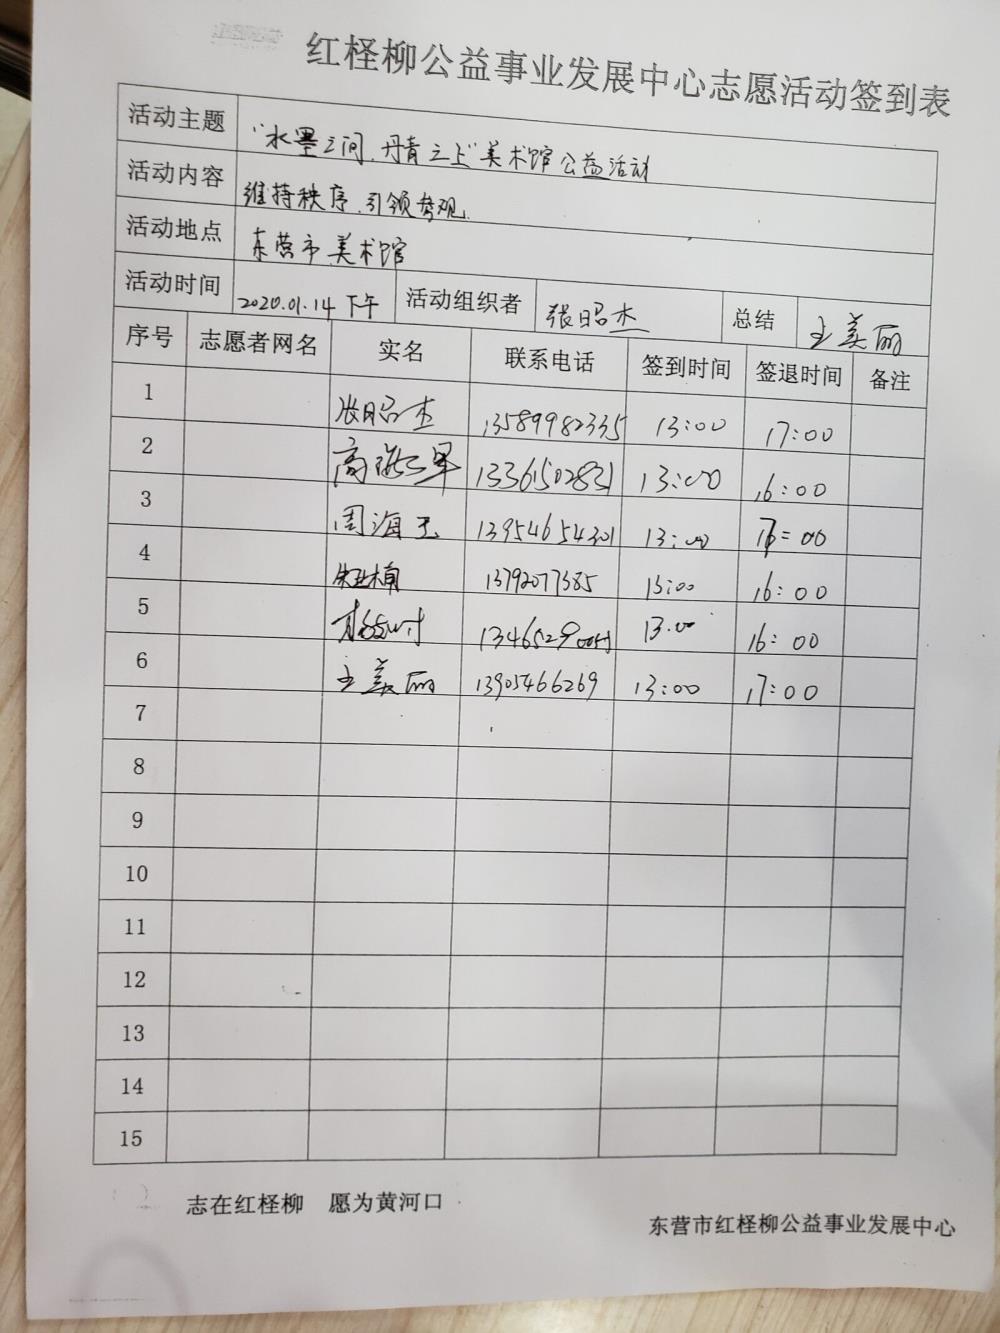 红柽柳公益事业发展中心志愿活动签到表
活动主题 “水墨之间、丹青之上”美术馆公益活动
活动内容 维持秩序、引领参观.
活动地点 东营市美术馆
活动时间 2020.01.14下午 活动组织者 张昭杰 总结 王美丽
序号 志愿者网名 实名 联系电话 签到时间 签退时间 备注
1 张昭杰 13589982335 13:00 17:00
2 13361502831 13:00 16:00
3 周海玉 13954654301 13:00 :00
4 13792077385 13:00 16:00
5 13:00 16:00
6 王美丽 13905466269 13:00 17:00
7
8
9
10
11
12
13
14
15
志在红柽柳 愿为黄河口
东营市红柽柳公益事业发展中心